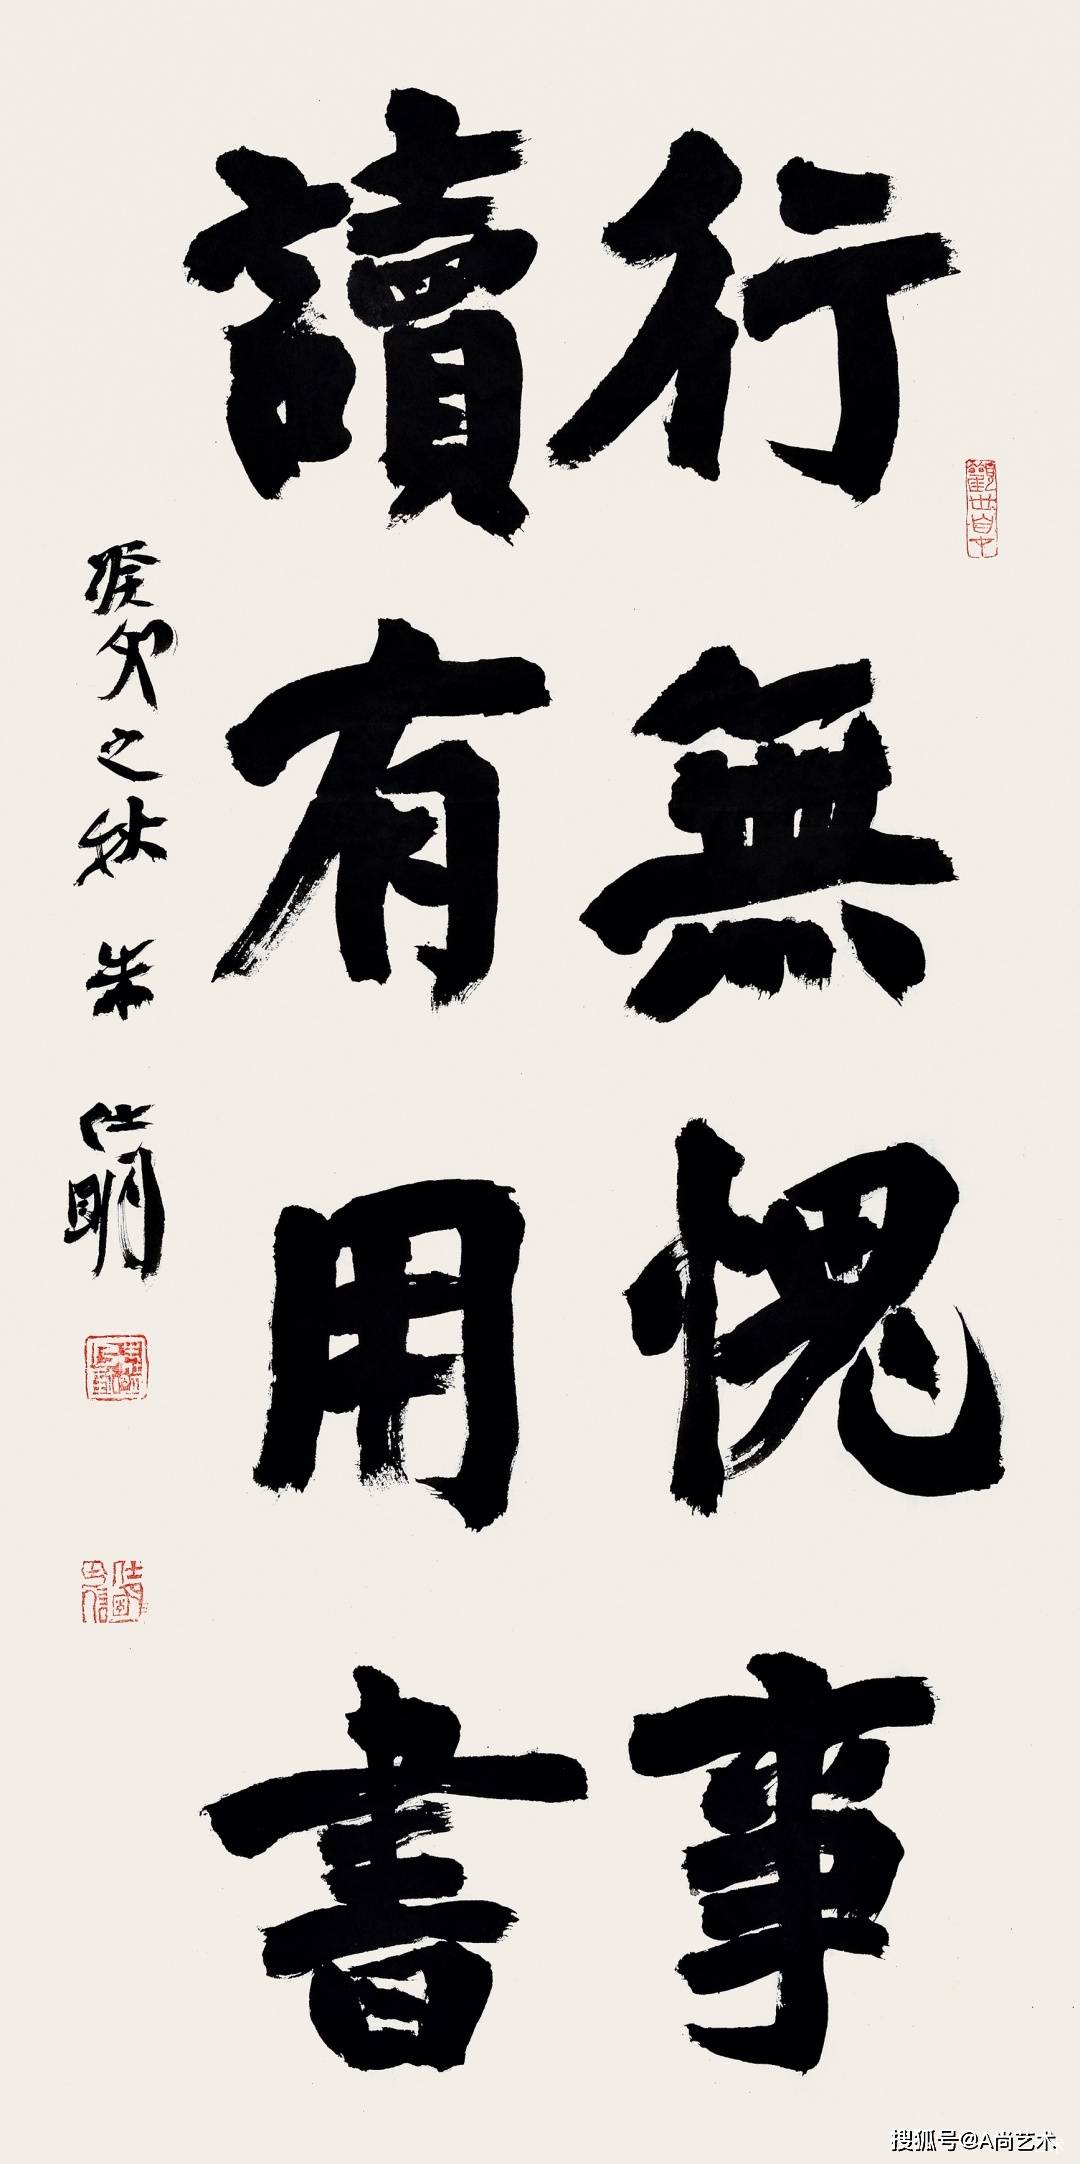 行無愧事
讀有用書
癸卯之秋 朱仕明
搜狐号@A尚艺术